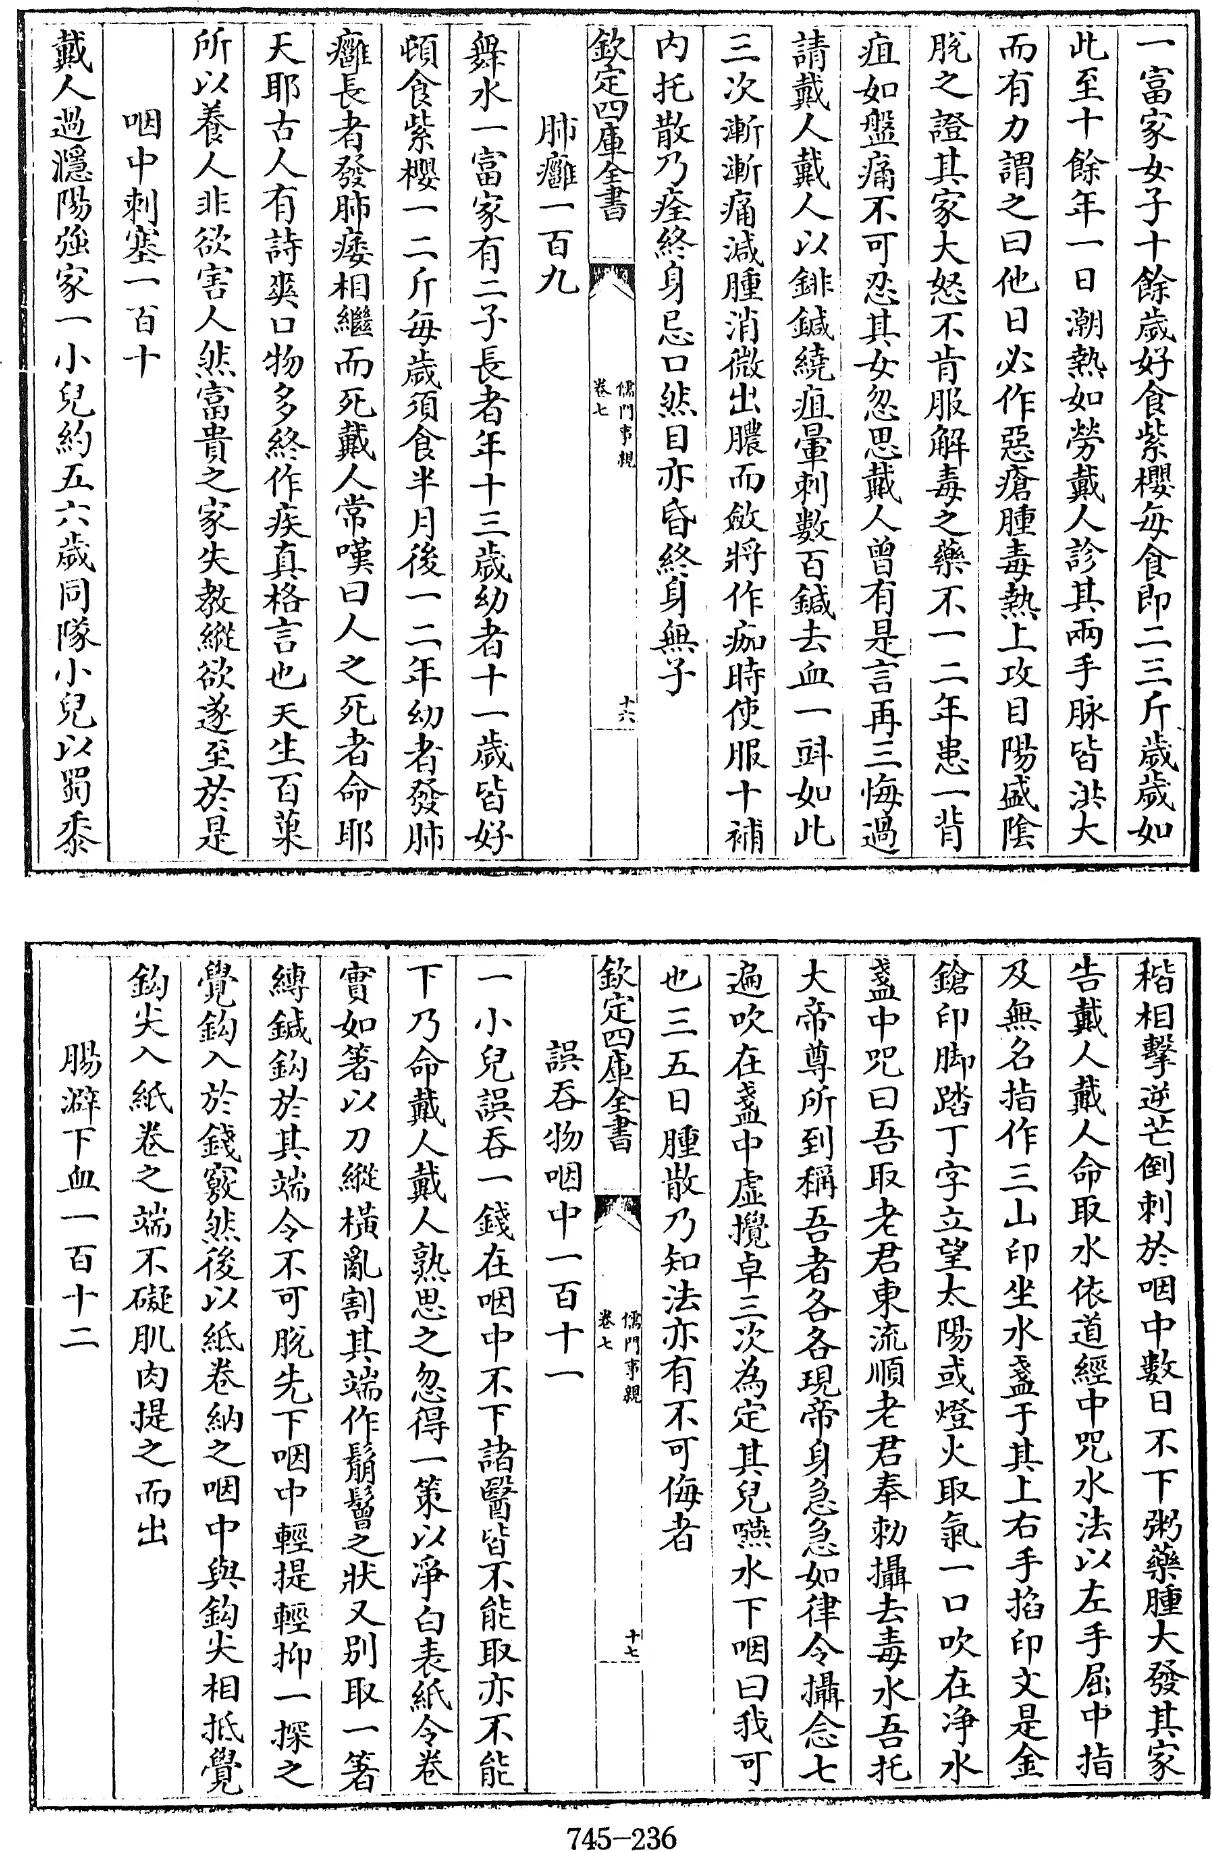 一富家女子十餘歲好食紫櫻每食即二三斤歲歲如
此至十餘年一日潮熱如勞戴人診其兩手脉皆洪大
而有力謂之曰他日必作惡瘡腫毒熱上攻目陽盛陰
脫之證其家大怒不肯服解毒之藥不一二年患一背
疽如盤痛不可忍其女忽思戴人曾有是言再三悔過
請戴人戴人以鈹鍼繞疽暈刺數百鍼去血一㪷如此
三次漸漸痛減腫消微出膿而斂將作痂時使服十補
内托散乃痊終身忌口然目亦昏終身無子
欽定四庫全書
儒門事親
卷七
十六
肺癰一百九
舞水一富家有二子長者年十三歲幼者十一歲皆好
頓食紫櫻一二斤每歲須食半月後一二年幼者發肺
癰長者發肺痿相繼而死戴人常嘆曰人之死者命耶
天耶古人有詩爽口物多終作疾真格言也天生百菓
所以養人非欲害人然富貴之家失教縱欲遂至於是
咽中刺塞一百十
戴人過㶏陽強家一小兒約五六歲同隊小兒以蜀黍
稭相擊逆芒倒刺於咽中數日不下粥藥腫大發其家
告戴人戴人命取水依道經中咒水法以左手屈中指
及無名指作三山印坐水盞于其上右手掐印文是金
鎗印脚踏丁字立望太陽或燈火取氣一口吹在净水
盞中咒曰吾取老君東流順老君奉勑攝去毒水吾托
大帝尊所到稱吾者各各現帝身急急如律令攝念七
遍吹在盞中虛攪卓三次為定其兒嚥水下咽曰我可
也三五日腫散乃知法亦有不可侮者
欽定四庫全書
儒門事親
卷七
十七
誤吞物咽中一百十一
一小兒誤吞一錢在咽中不下諸醫皆不能取亦不能
下乃命戴人戴人熟思之忽得一策以淨白表紙令卷
實如箸以刀縱橫亂割其端作鬅鬙之狀又別取一箸
縛鍼鈎於其端令不可脫先下咽中輕提輕抑一探之
覺鈎入於錢竅然後以紙卷納之咽中與鈎尖相抵覺
鈎尖入紙卷之端不礙肌肉提之而出
腸澼下血一百十二
745-236